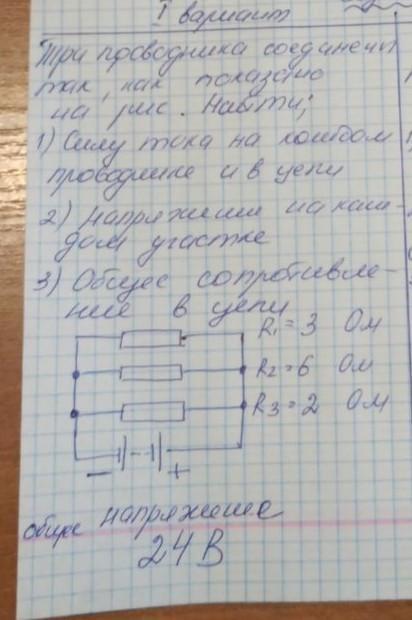 I вариант
Три проводника соединены
так, как показано
на рис. Найти;
1) Силу тока на каждом
проводнике и в цепи
2) Напряжение на каж-
дом участке
3) Общее сопротивле-
ние в цепи
R₁ = 3 Ом
R₂ = 6 Ом
R₃ = 2 Ом
– +
общее напряжение
24 В